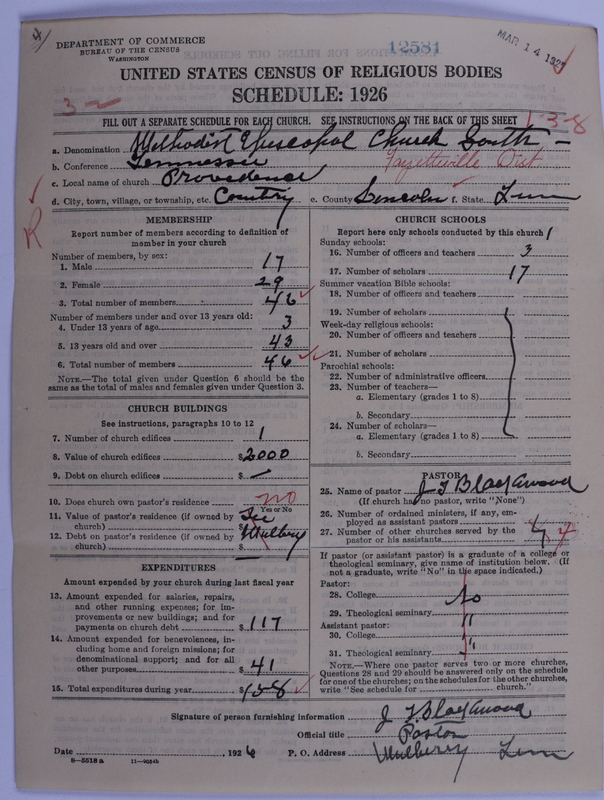 4
DEPARTMENT OF COMMERCE
BUREAU OF THE CENSUS
WASHINGTON
12581
MAR 14 192
UNITED STATES CENSUS OF RELIGIOUS BODIES
SCHEDULE: 1926
3
FILL OUT A SEPARATE SCHEDULE FOR EACH CHURCH. SEE INSTRUCTIONS ON THE BACK OF THIS SHEET
1-3-8
a. Denomination Methodist Episcopal Church South
b. Conference Tennessee Fayettville Dist
c. Local name of church Providence
d. City, town, village, or township, etc. Country e. County Lincoln f. State Tenn
R
MEMBERSHIP
Report number of members according to definition of
member in your church
Number of members, by sex:
1. Male 17
2. Female 29
3. Total number of members 46
Number of members under and over 13 years old:
4. Under 13 years of age 3
5. 13 years old and over 43
6. Total number of members 46
NOTE.—The total given under Question 6 should be the
same as the total of males and females given under Question 3.
CHURCH BUILDINGS
See instructions, paragraphs 10 to 12
7. Number of church edifices 1
8. Value of church edifices $2000
9. Debt on church edifices $ —
10. Does church own pastor's residence no
Yes or No
11. Value of pastor's residence (if owned by See
church) $
12. Debt on pastor's residence (if owned by Mulbery
church) $ —
EXPENDITURES
Amount expended by your church during last fiscal year
13. Amount expended for salaries, repairs,
and other running expenses; for im-
provements or new buildings; and for
payments on church debt $ 117
14. Amount expended for benevolences, in-
cluding home and foreign missions; for
denominational support; and for all
other purposes $ 41
15. Total expenditures during year $ 158
CHURCH SCHOOLS
Report here only schools conducted by this church 1
Sunday schools:
16. Number of officers and teachers 3
17. Number of scholars 17
Summer vacation Bible schools:
18. Number of officers and teachers
19. Number of scholars
Week-day religious schools:
20. Number of officers and teachers
21. Number of scholars
Parochial schools:
22. Number of administrative officers
23. Number of teachers—
a. Elementary (grades 1 to 8)
b. Secondary
24. Number of scholars—
a. Elementary (grades 1 to 8)
b. Secondary
PASTOR
25. Name of pastor J T Blackwood
(If church has no pastor, write "None")
26. Number of ordained ministers, if any, em-
ployed as assistant pastors
27. Number of other churches served by the
pastor or his assistants 4 4
If pastor (or assistant pastor) is a graduate of a college or
theological seminary, give name of institution below. (If
not a graduate, write "No" in the space indicated.)
Pastor:
28. College No
29. Theological seminary "
Assistant pastor:
30. College "
31. Theological seminary
NOTE.—Where one pastor serves two or more churches,
Questions 28 and 29 should be answered only on the schedule
for one of the churches; on the schedules for the other churches,
write "See schedule for church."
Signature of person furnishing information J T Blackwood
Official title Pastor
Date , 1926 P. O. Address Mulberry Tenn
8-5518 a 11-9084b